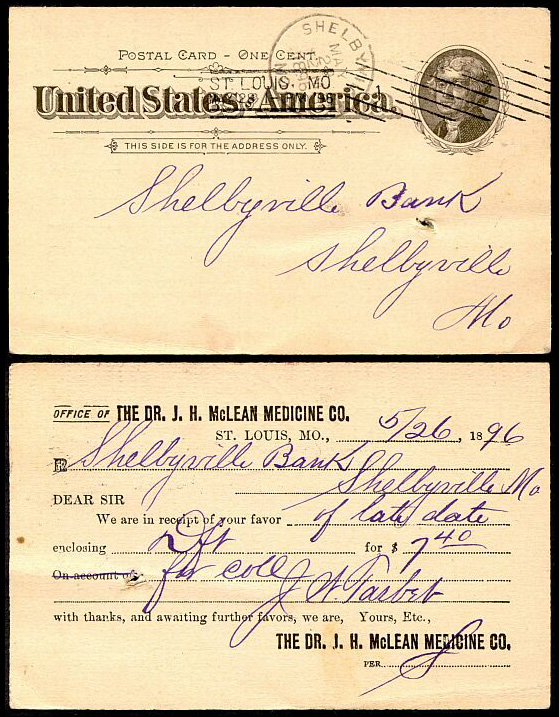 POSTAL CARD - ONE CENT.
United States, America.
THIS SIDE IS FOR THE ADDRESS ONLY.
SHELBY
MAY
ST. LOUIS, MO
Shelbyville Bank
Shelbyville
Mo
OFFICE OF THE DR. J. H. McLEAN MEDICINE CO.
ST. LOUIS, MO., 5/26, 1896
Shelbyville Bank
Shelbyville Mo
DEAR SIR
We are in receipt of your favor of late date
enclosing Dft for $ 7 40
On account of for coll J W Tarbet
with thanks, and awaiting further favors, we are, Yours, Etc.,
THE DR. J. H. McLEAN MEDICINE CO.
PER S